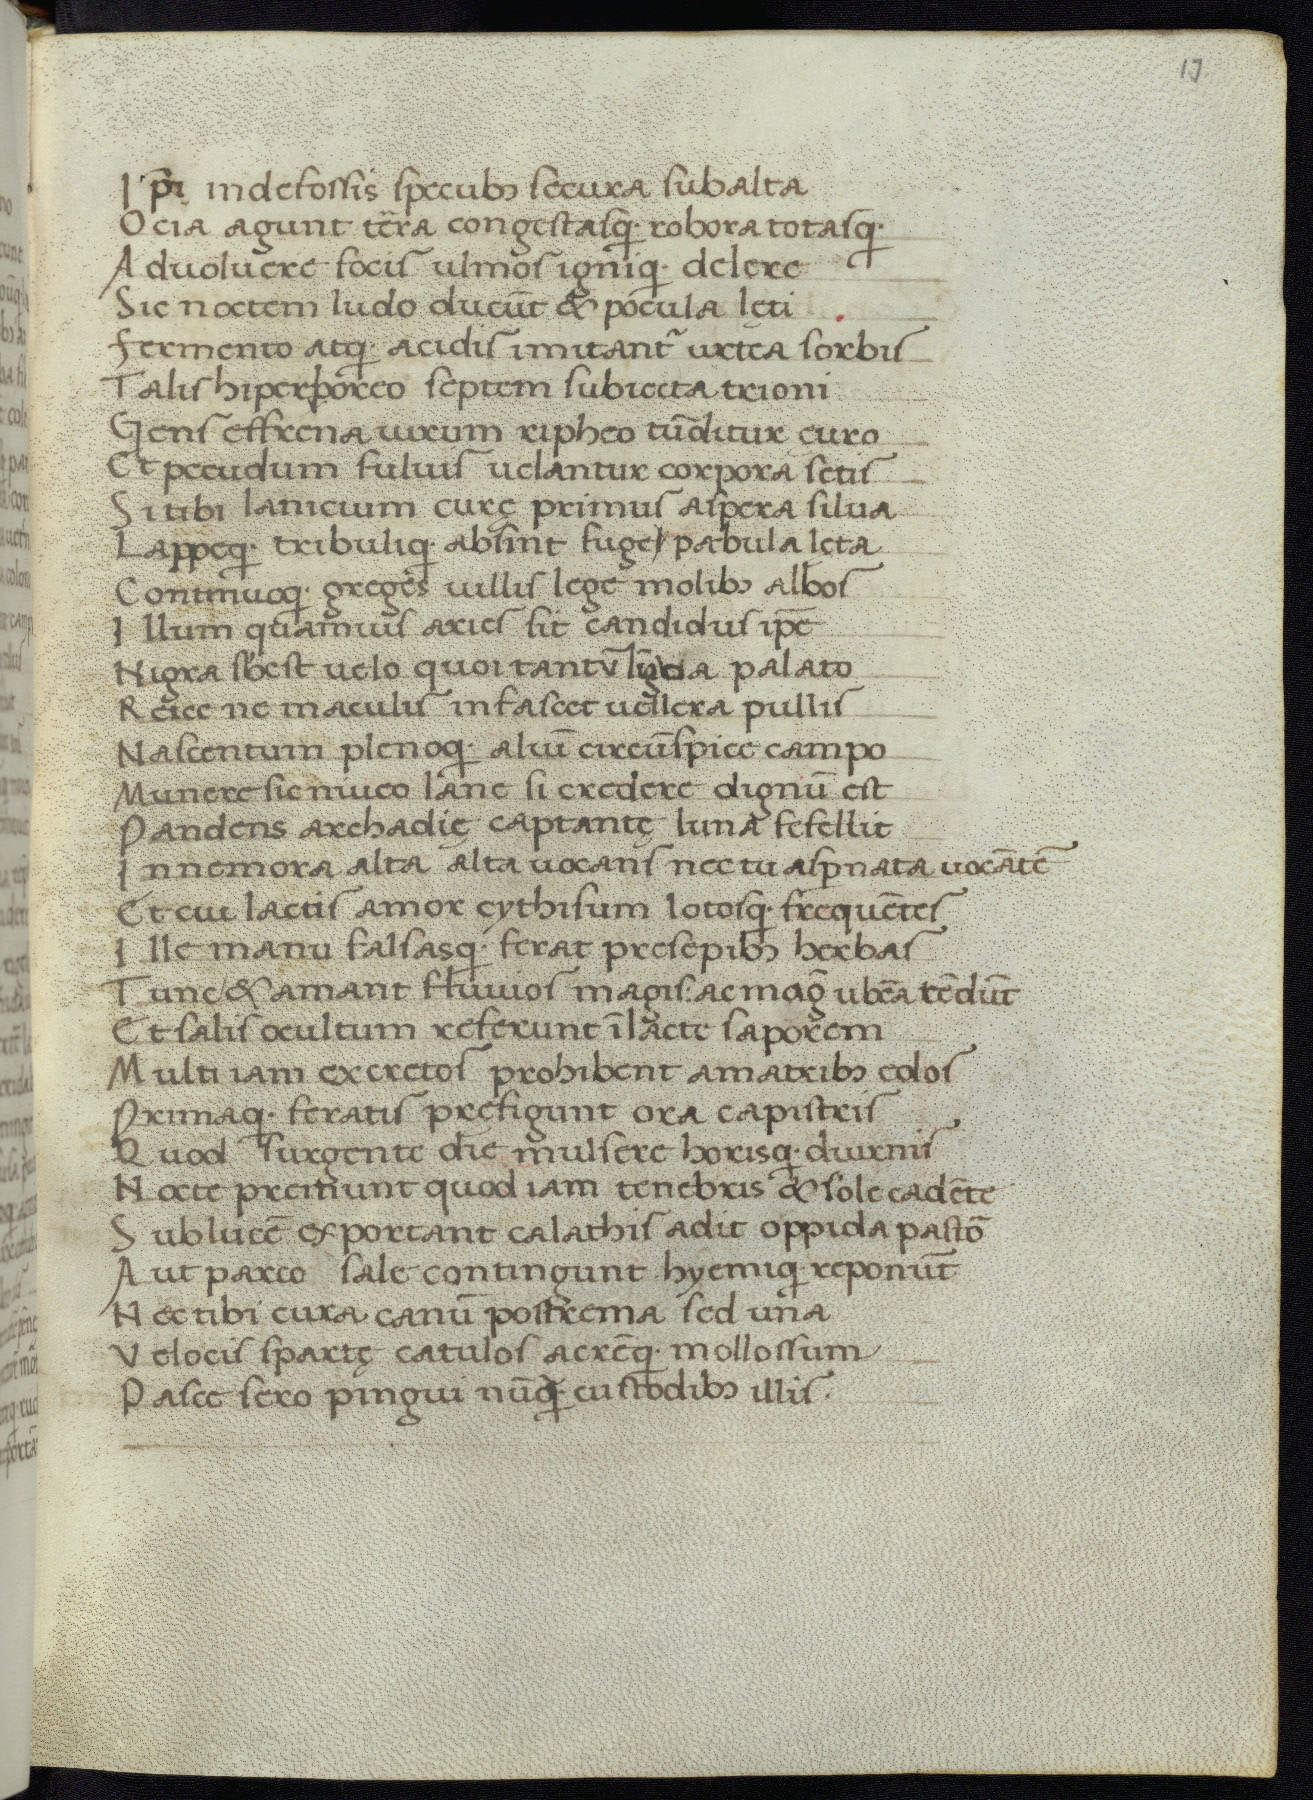 17
I p̄i in defossis specubꝫ secura sub alta
Ocia agunt tr̄ra congestasq· robora totasq·
Aduoluere focis ulmos igniq· delere
Sic noctem ludo ducūt & pocula lęti
Fermento atq· acidis imitant᷑ uitea sorbis
Talis hiperboreo septem subiecta trioni
Gens effrena uirum ripheo tūditur euro
Et pecudum fuluis uelantur corpora setis
Si tibi lanicium curę primus aspera silua
Lappeq· tribuliq· absint fuge pabula leta
Continuoq· greges uillis lege molibꝫ albos
Illum quamuis aries sit candidus ip̄e
Nigra sb̓est uelo quoi tantū lingua palato
Reiice ne maculis infascet uellera pullis
Nascentum plenoq· aliū circūspice campo
Munere sic niueo lane si credere dignū est
Pandens archadię captantę luna fefellit
In nemora alta alta uocans nec tu aspnata uocātē
Et cui lactis amor cythisum lotosq· frequētes
Ille manu falsasq· ferat presepibꝫ herbas
Tunc & amant fluuios magis: ac mag̃ ubēa tēdūt
Et salis ocultum referunt ī lacte saporem
Multi iam excretos prohibent a matribꝫ edos
Primaq· feratis prefigunt ora capistris
Quod surgente die mulsere horisq· diurnis
Nocte premunt quod iam tenebris & sole cadēte
Sub lucē exportant calathis adit oppida pastō
Aut parco sale contingunt hyemiq· reponūt
Nec tibi cura canū postrema sed una
Velocis spartę catulos acrēq· mollossum
Pasce sero pingui nūq̄· custodibꝫ illis·